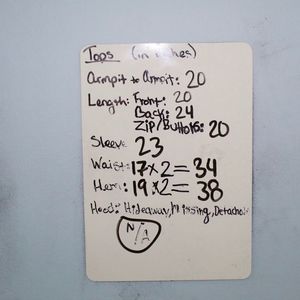 Tops (in inches)
armpit to armpit: 20
Length: Front: 20
Back: 24
Zip/Buttons: 20
Sleeve 23
Waist: 17x2=34
Hem: 19x2=38
Hood: Hideaway, Missing, Detachable
N/A